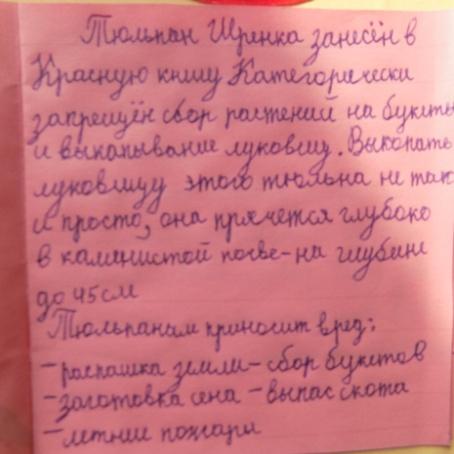 Тюльпан Шренка занесён в
Красную книгу Категорически
запрещён сбор растений на букеты
и выкапывание луковиц. Выкопать
луковицу этого тюльпа не так
и просто, она прячется глубоко
в каменистой почве - на глубине
до 45 см
Тюльпанам приносит вред:
- распашка земли - сбор букетов
- заготовка сена - выпас скота
- летние пожары